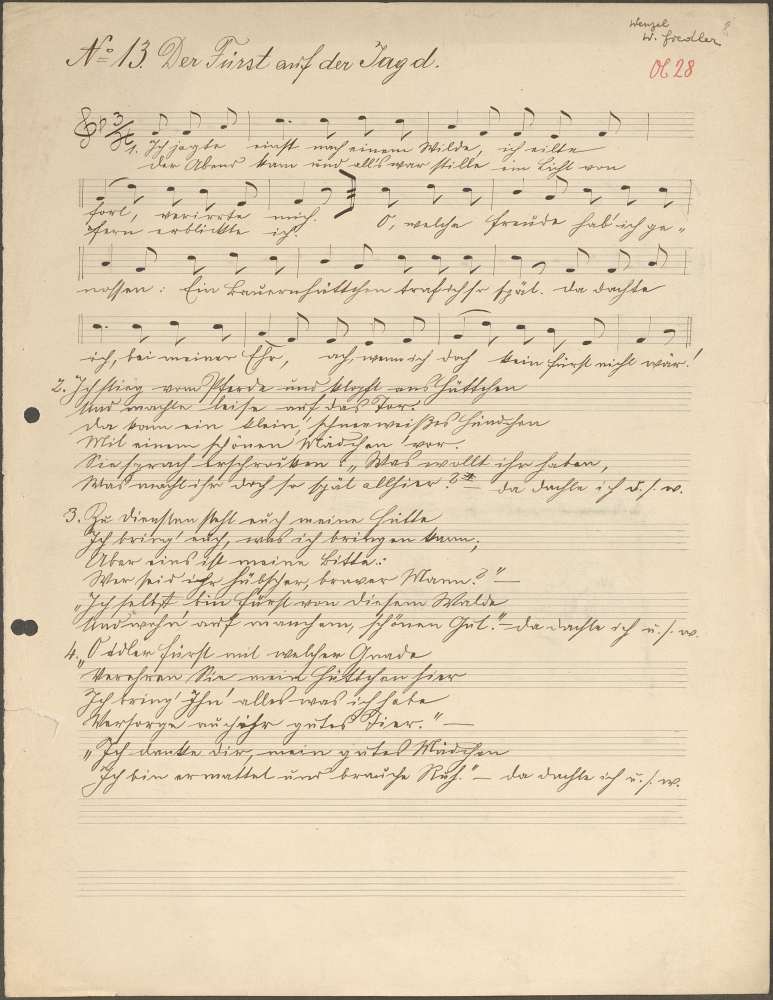 Wenzel
W. Friedler
No 13. Der Fürst auf der Jagd.
Ob 28
3/4
1. Ich jagte einst nach einem Wilde, ich eilte
der Abend kam und all's war stille ein Licht von
fort, verirrte mich. O, welche Freude hab' ich ge-
fern erblickte ich.
nossen: Ein Bauernhüttchen traf ich so spät. Da dachte
ich, bei meiner Ehr, ach, wenn ich doch kein Fürst nicht wär!
2. Ich stieg vom Pferde und klopft ans Hüttchen
Und machte leise auf das Tor.
Da kam ein klein, schneeweißes Hündchen
Mit einem schönen Mädchen vor.
Sie sprach erschrocken: „Was wollt ihr haben,
Was macht ihr doch so spät allhier?" — da dachte ich u. s. w.
3. Zu Diensten steht euch meine Hütte
Ich bring' euch, was ich bringen kann;
Aber eins ist meine Bitte:
Wer seid ihr hübscher, braver Mann?" —
„Ich selbst bin Fürst von diesem Walde
Und wohn auf manchem, schönen Gut." — da dachte ich u. s. w.
4. „O edler Fürst mit welcher Gnade
Verehren Sie mein Hüttchen hier
Ich bring' Ihn' alles was ich habe
Versorge auch ihr gutes Tier." —
„Ich danke dir, mein gutes Mädchen
Ich bin ermattet und brauche Ruh." — da dachte ich u. s. w.